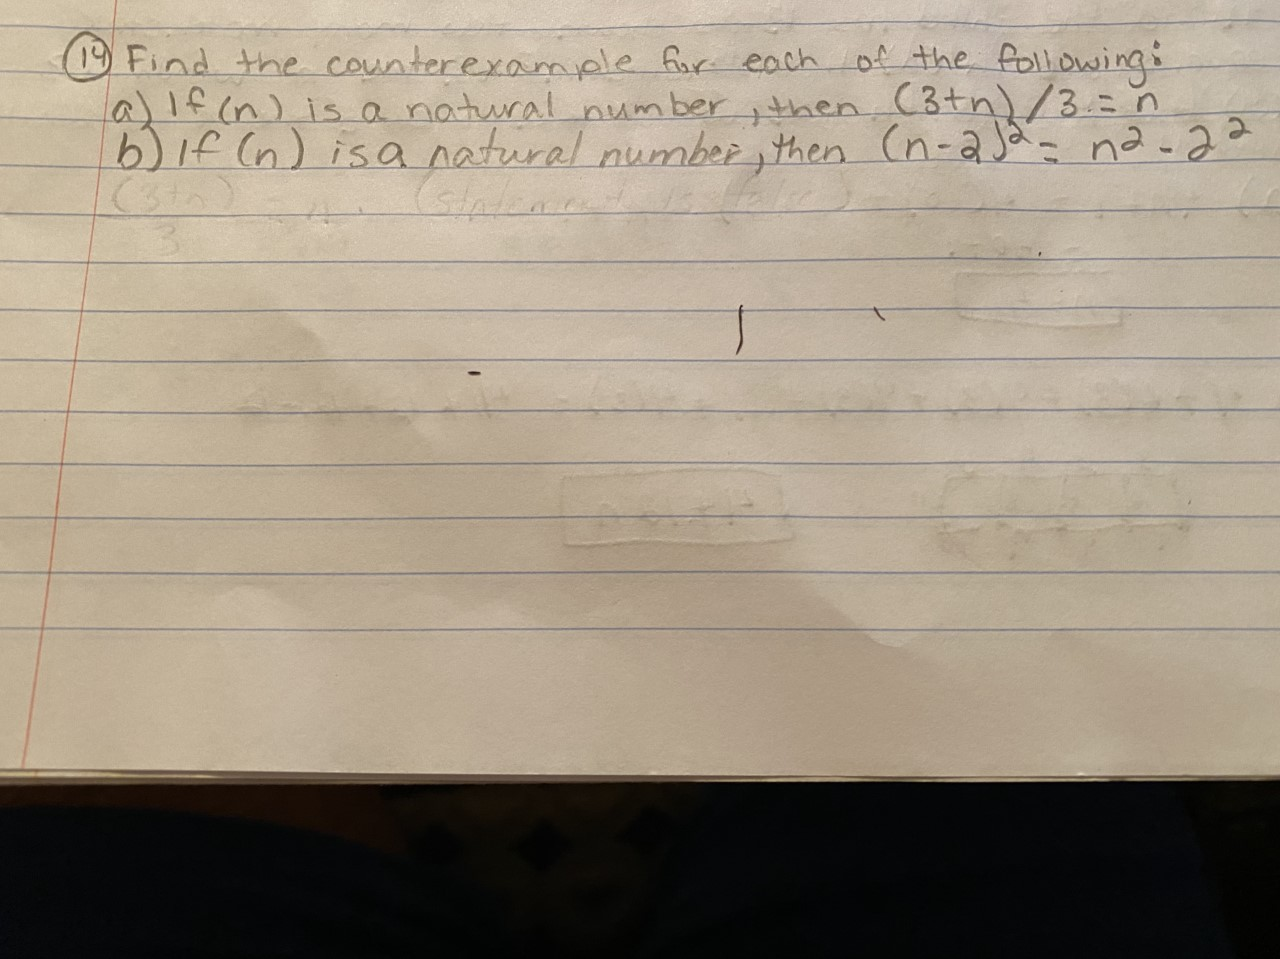 14 Find the counterexample for each of the following:
a) If (n) is a natural number, then (3+n)/3 = n
b) If (n) is a natural number, then (n-2)² = n² - 2²
(3+n) = n. (statement is false)
3